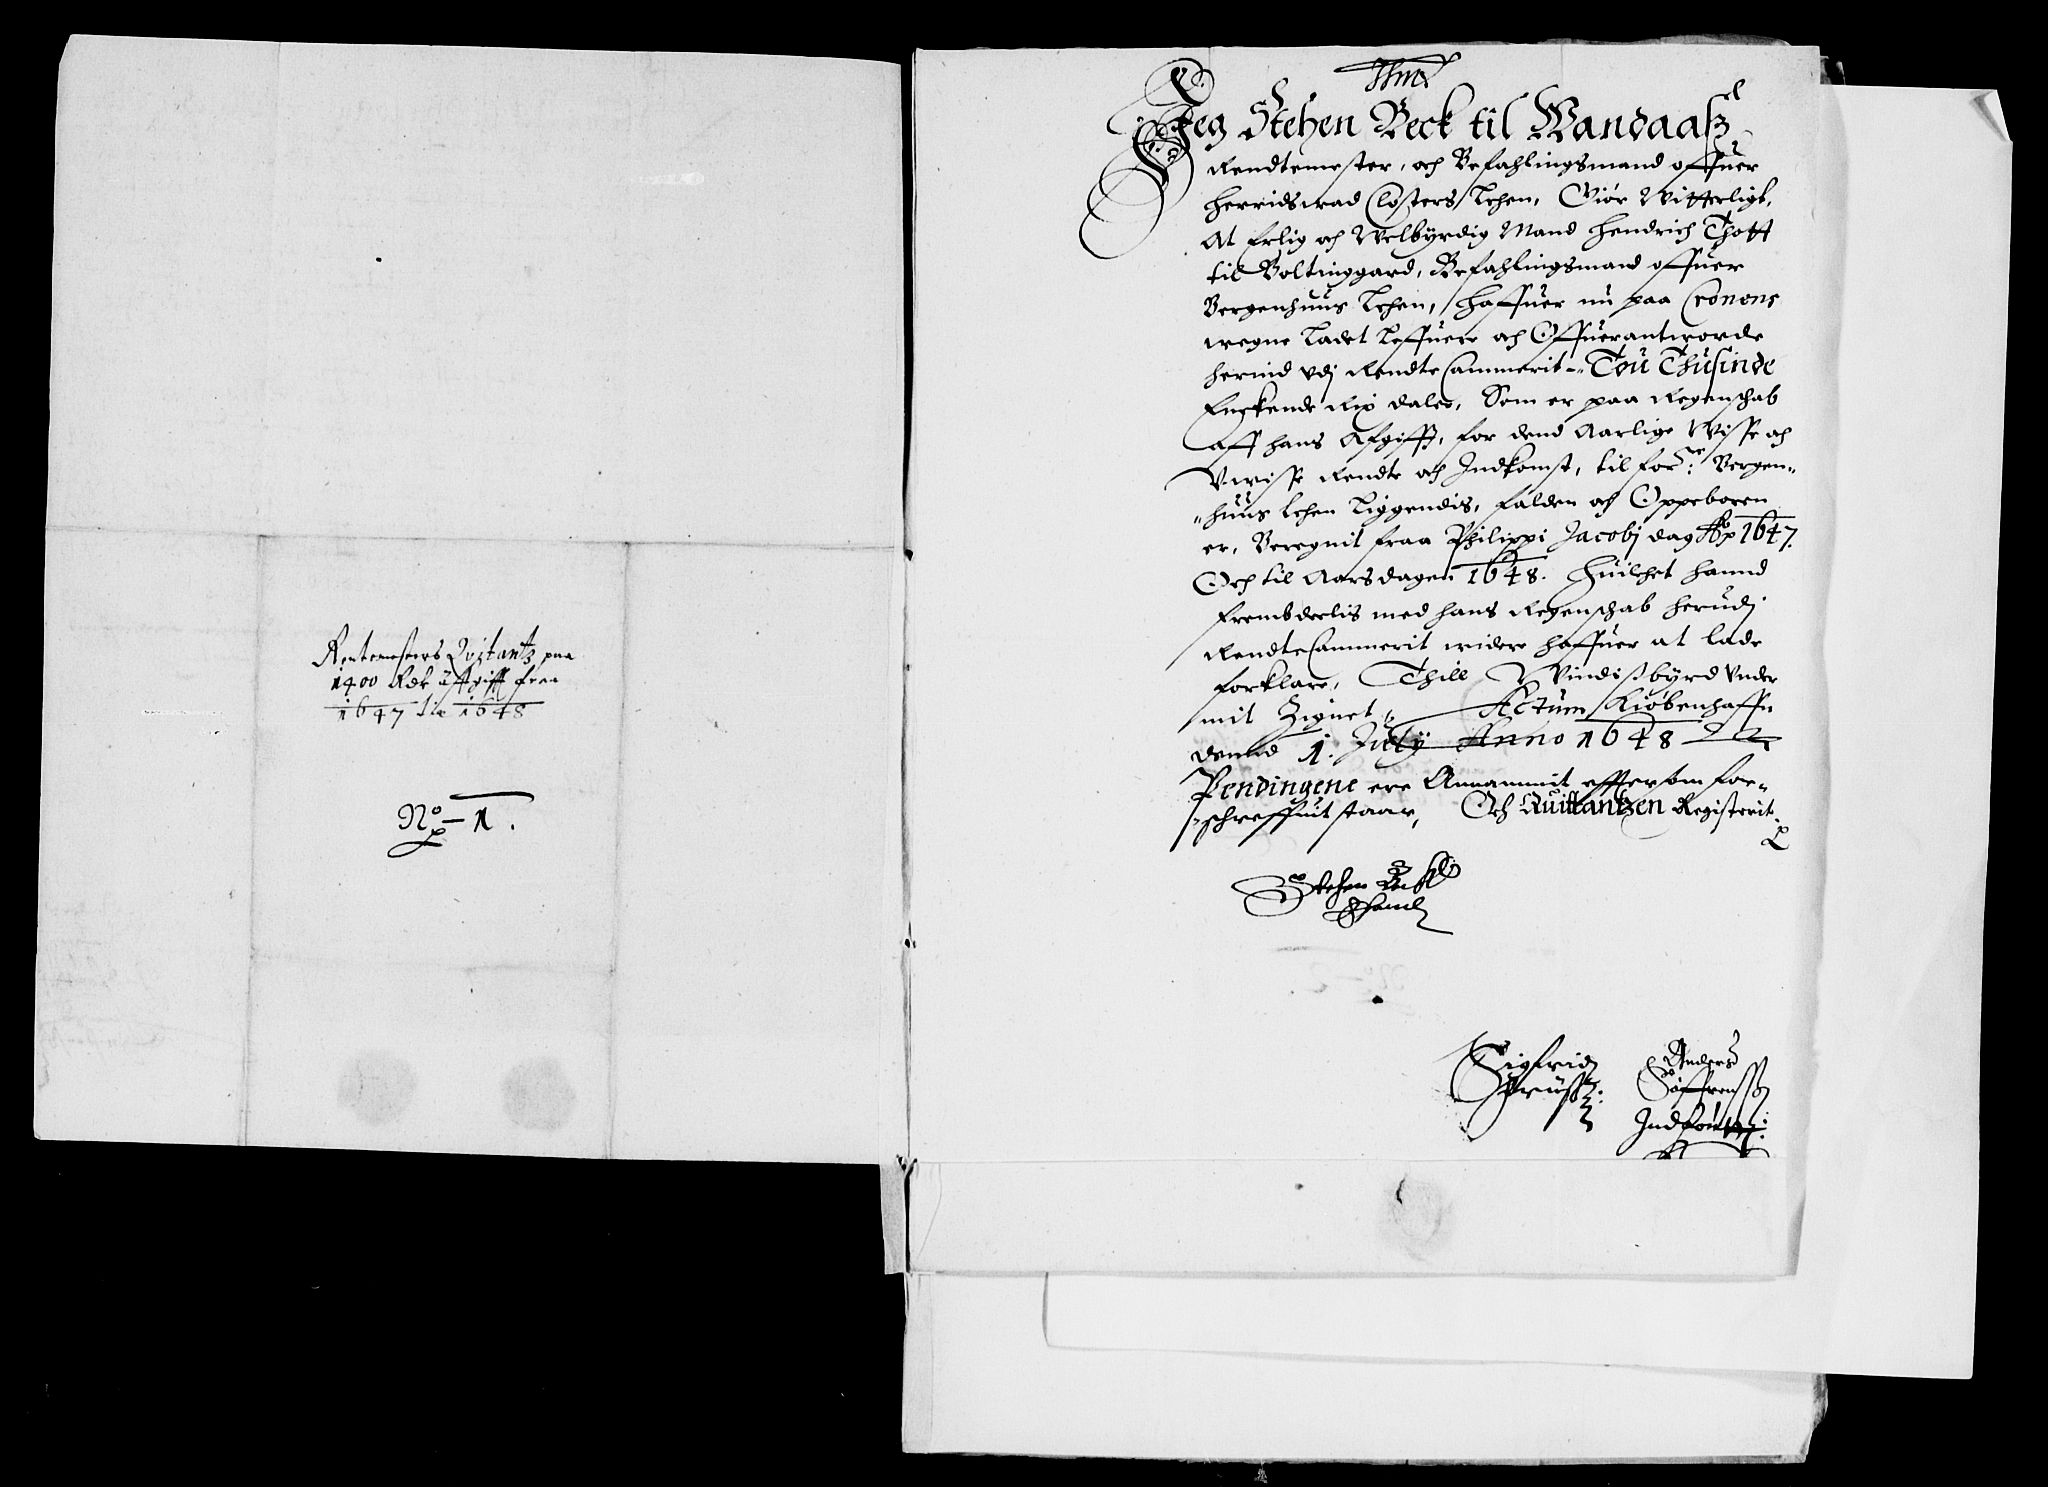 Rentemesters Qvitantz paa
1400 Rdr afgifft fraa
1647 til 1648
No 1.
Jeg Stehen Beck til Wandaass
Rendtemester, och Befahlingsmand offuer
Herridswad Closters Lehen, Giör Witterligt,
At Erlig och Welbyrdig Mand Hendrich Thott
til Boltinggaard, Befahlingsmand offuer
Bergenhuus Lehen, Haffuer nu paa Cronens
wegne Ladet Leffuere och Offuerantworde
herind vdj RendteCammerit - Tou Thusinde
Enckende Rix daler, Som er paa Regenschab
aff hans Afgifft, for dend Aarlige Wisse och
Vwisse Rendte och Indkomst, til forne: Bergen-
huus Lehen Liggendis, falden och Oppeboren
er, Beregnit fraa Philippi Jacobj dag Ao 1647.
Och til Aarsdagen 1648. Huilchet hannd
frembdelis med hans Regenschab herudj
RendteCammerit widere haffuer at lade
forklare, Thill Windissbyrd Vnder
mit Zignet, Actum Kiöbenhaffn
dennd 1. July Anno 1648
Pendingene ere Annammit effter som for-
schreffuit staar, Och Quittantzen Registerit
Stehen Beck
Ehand
Sigfrid
Preüss
Anders
Söffrenss